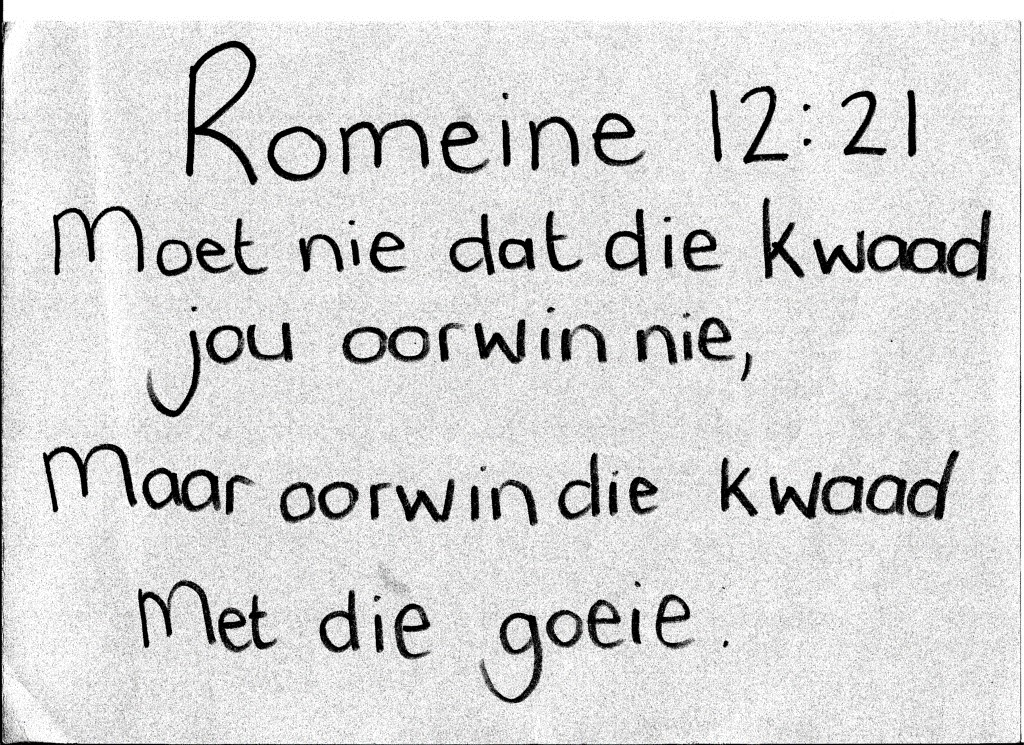 Romeine 12:21
Moet nie dat die kwaad
jou oorwin nie,
Maar oorwin die kwaad
Met die goeie.